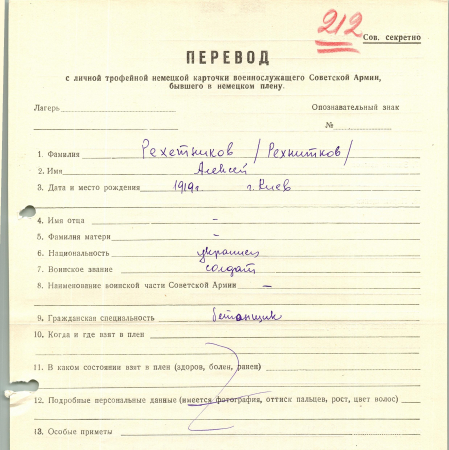 212
Сов. секретно
ПЕРЕВОД
с личной трофейной немецкой карточки военнослужащего Советской Армии,
бывшего в немецком плену.
Лагерь
Опознавательный знак
№
1. Фамилия Рехетников /Рехнитков/
2. Имя Алексей
3. Дата и место рождения 1919г. г. Киев
4. Имя отца –
5. Фамилия матери –
6. Национальность украинец
7. Воинское звание солдат
8. Наименование воинской части Советской Армии –
9. Гражданская специальность бетонщик
10. Когда и где взят в плен
11. В каком состоянии взят в плен (здоров, болен, ранен)
12. Подробные персональные данные (имеется фотография, оттиск пальцев, рост, цвет волос)
13. Особые приметы